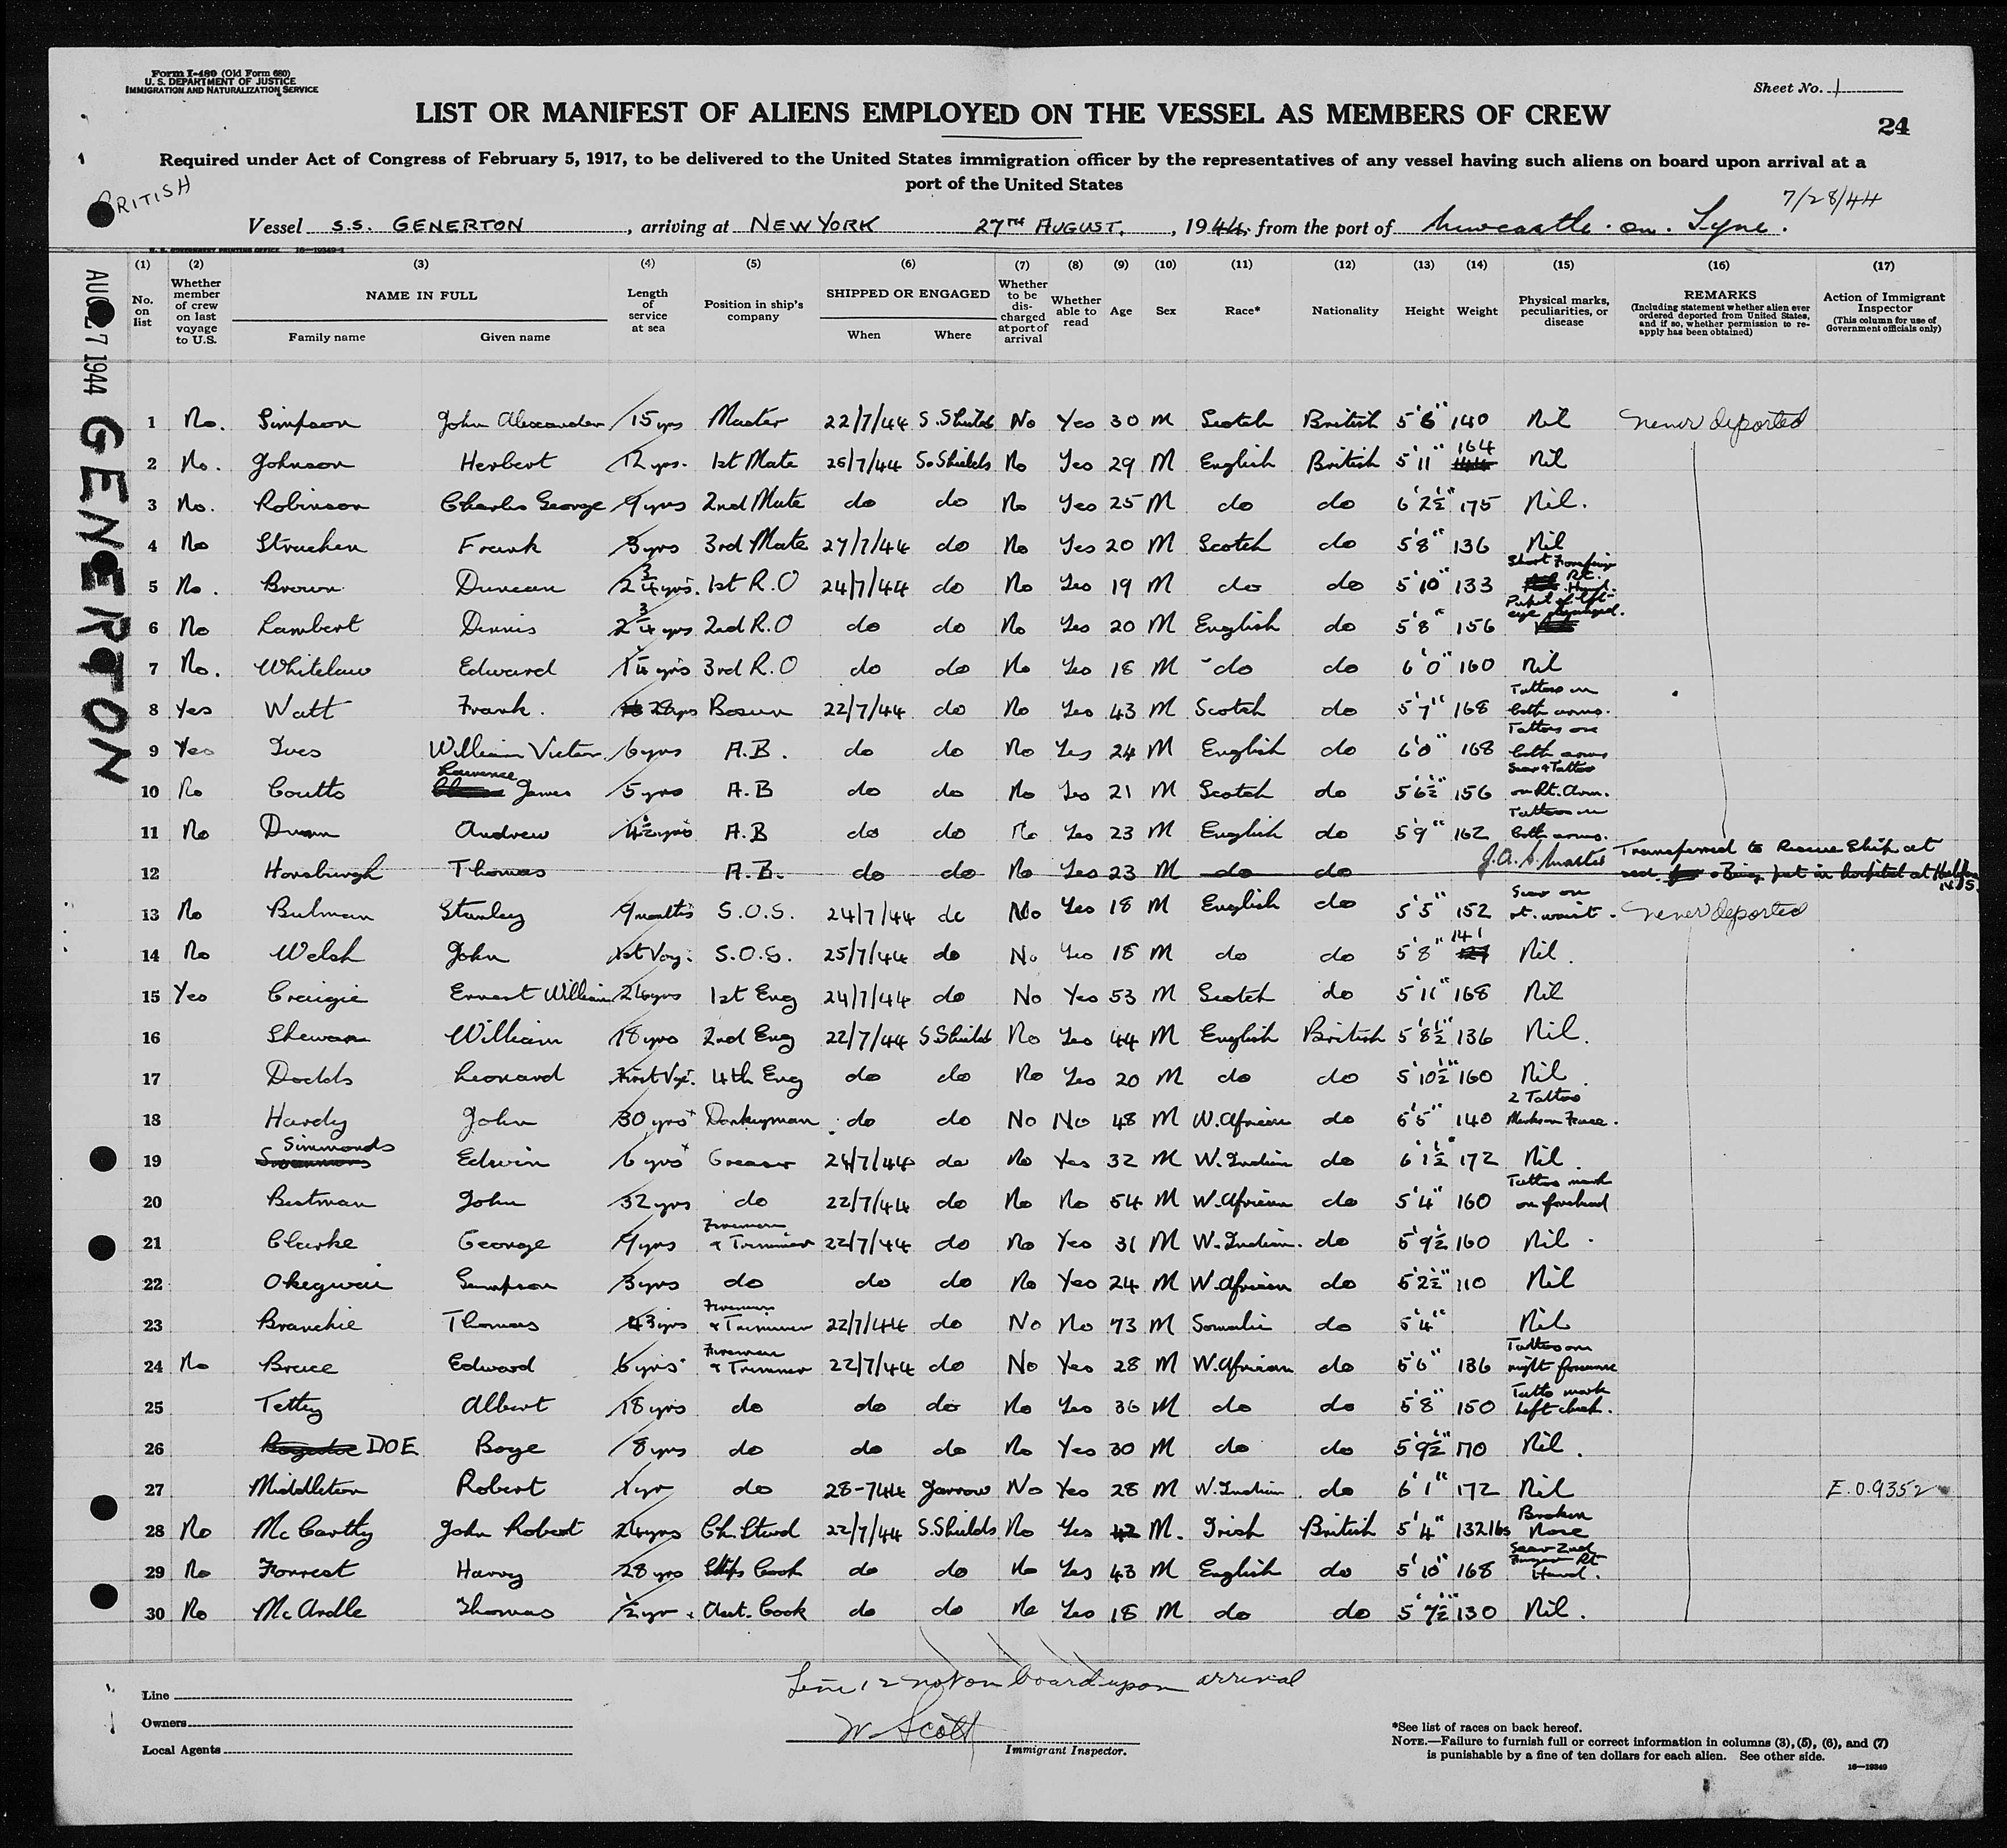 Form I-489 (Old Form 680)
U. S. DEPARTMENT OF JUSTICE
IMMIGRATION AND NATURALIZATION SERVICE
Sheet No. 1
LIST OR MANIFEST OF ALIENS EMPLOYED ON THE VESSEL AS MEMBERS OF CREW
24
Required under Act of Congress of February 5, 1917, to be delivered to the United States immigration officer by the representatives of any vessel having such aliens on board upon arrival at a
port of the United States
BRITISH
7/28/44
Vessel S.S. GENERTON, arriving at NEW YORK 27TH AUGUST, 1944, from the port of Newcastle-on-Tyne.
U. S. GOVERNMENT PRINTING OFFICE 16-19349-1
AUG 27 1944 GENERTON
(1) (2) (3) (4) (5) (6) (7) (8) (9) (10) (11) (12) (13) (14) (15) (16) (17)
No. on list
Whether member of crew on last voyage to U.S.
NAME IN FULL
Family name Given name
Length of service at sea
Position in ship's company
SHIPPED OR ENGAGED
When Where
Whether to be discharged at port of arrival
Whether able to read
Age
Sex
Race*
Nationality
Height
Weight
Physical marks, peculiarities, or disease
REMARKS
(Including statement whether alien ever ordered deported from United States, and if so, whether permission to reapply has been obtained)
Action of Immigrant Inspector
(This column for use of Government officials only)
1 No. Simpson John Alexander 15 yrs Master 22/7/44 S. Shields No Yes 30 M Scotch British 5'6" 140 Nil never deported
2 No. Johnson Herbert 12 yrs. 1st Mate 26/7/44 So Shields No Yes 29 M English British 5'11" 164 Nil
3 No. Robinson Charles George 9 yrs 2nd Mate do do No Yes 25 M do do 6'2½" 175 Nil.
4 No Strachan Frank 3 yrs 3rd Mate 27/7/44 do No Yes 20 M Scotch do 5'8" 136 Nil
5 No. Brown Duncan 2¾ yrs. 1st R.O 24/7/44 do No Yes 19 M do do 5'10" 133 Short Rt. Hand.
6 No Lambert Dennis 2¾ yrs 2nd R.O do do No Yes 20 M English do 5'8" 156 Pupil of left eye
7 No. Whitelaw Edward 1¼ yrs 3rd R.O do do No Yes 18 M do do 6'0" 160 Nil
8 Yes Watt Frank. 28 yrs Bosun 22/7/44 do No Yes 43 M Scotch do 5'7" 168 Tattoos on both arms.
9 Yes Ives William Victor 6 yrs A.B. do do No Yes 24 M English do 6'0" 168 Tattoos on both arms
10 No Coutts Lawrence James 5 yrs A.B do do No Yes 21 M Scotch do 5'6½" 156 Scar & Tattoo on Rt. Arm.
11 No Dunn Andrew 4½ yrs A.B do do No Yes 23 M English do 5'9" 162 Tattoos on both arms.
12 Horsburgh Thomas A.B. do do No Yes 23 M do do J.A.S. Master Transferred to Rescue Ship at sea. Being put in hospital at Halifax N.S.
13 No Bulman Stanley 9 months S.O.S. 24/7/44 do No Yes 18 M English do 5'5" 152 Scar on rt. wrist. never deported
14 No Welsh John 1st Voy. S.O.S. 25/7/44 do No Yes 18 M do do 5'8" 141 Nil.
15 Yes Craigie Ernest William 26 yrs 1st Eng 24/7/44 do No Yes 53 M Scotch do 5'11" 168 Nil
16 Shewan William 18 yrs 2nd Eng 22/7/44 S. Shields No Yes 44 M English British 5'8½" 136 Nil.
17 Dodds Leonard First Vge. 4th Eng do do No Yes 20 M do do 5'10½" 160 Nil.
18 Hardy John 30 yrs Donkeyman do do No No 48 M W. African do 5'5" 140 2 Tattoo Marks on Face.
19 Simmonds Edwin 6 yrs Greaser 24/7/44 do No Yes 32 M W. Indian do 6'1½" 172 Nil.
20 Bestman John 32 yrs do 22/7/44 do No No 54 M W. African do 5'4" 160 Tattoo mark on forehead
21 Clarke George 9 yrs Fireman & Trimmer 22/7/44 do No Yes 31 M W. Indian. do 5'9½" 160 Nil.
22 Okegwai Sampson 3 yrs do do do No Yes 24 M W. African do 5'2½" 110 Nil
23 Branchie Thomas 43 yrs Fireman & Trimmer 22/7/44 do No No 73 M Somalie do 5'4" Nil
24 No Bruce Edward 6 yrs Fireman & Trimmer 22/7/44 do No Yes 28 M W. African do 5'6" 136 Tattoo on right forearm
25 Tettey Albert 18 yrs do do do No Yes 36 M do do 5'8" 150 Tatto mark Left cheek.
26 DOE Boye 8 yrs do do do No Yes 30 M do do 5'9½" 170 Nil.
27 Middleton Robert 1 yr do 28-7-44 Jarrow No Yes 28 M W. Indian. do 6'1" 172 Nil E.O.9352
28 No McCarthy John Robert 24 yrs Ch. Stwd 22/7/44 S. Shields No Yes 42 M. Irish British 5'4" 132 lbs Broken Nose
29 No Forrest Harry 28 yrs Ships Cook do do No Yes 43 M English do 5'10" 168 Scar 2nd Finger Rt. Hand.
30 No McArdle Thomas ½ yr. Asst. Cook do do No Yes 18 M do do 5'7½" 130 Nil.
Line 12 not on board upon arrival
W Scott
Immigrant Inspector.
Line
Owners
Local Agents
*See list of races on back hereof.
NOTE.—Failure to furnish full or correct information in columns (3), (5), (6), and (7)
is punishable by a fine of ten dollars for each alien. See other side.
16—19349